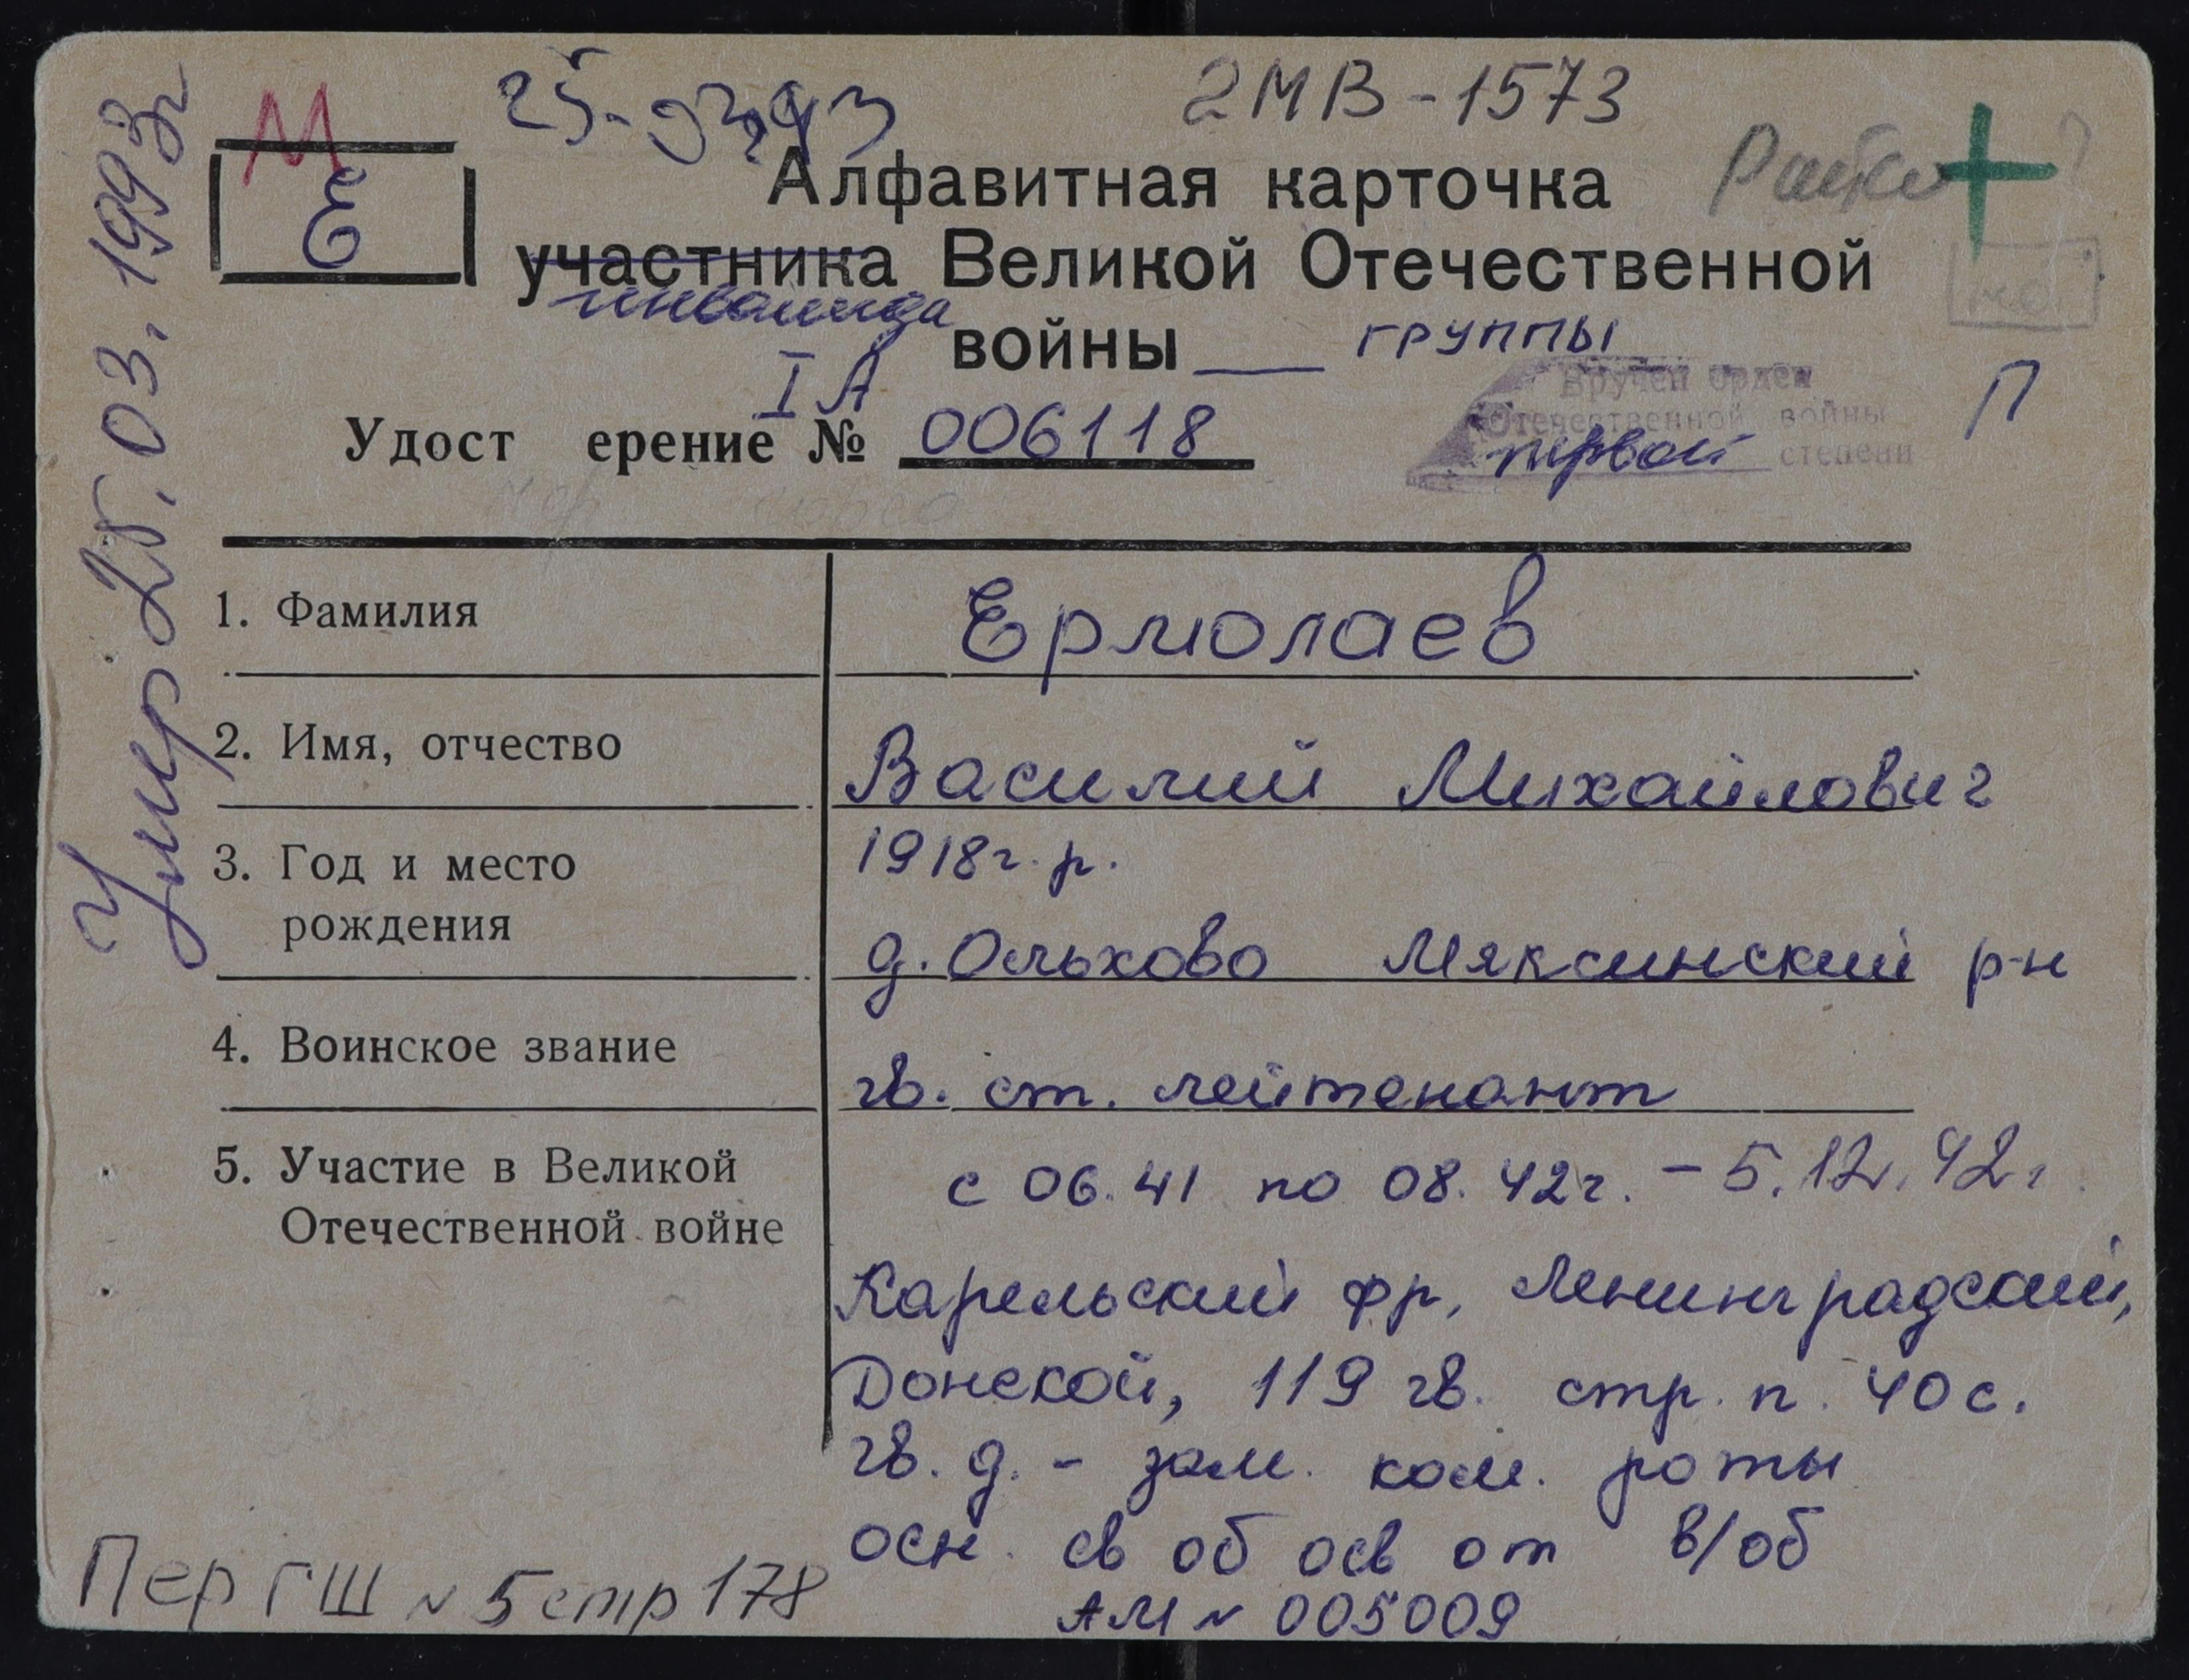 М
Е
25.03.93
2МВ-1573
Алфавитная карточка
участника Великой Отечественной
инвалида
войны __ группы
I А
Удост ерение № 006118
Вручен орден
Отечественной войны
первой степени
П
Умер 25.03.1993г
1. Фамилия
Ермолаев
2. Имя, отчество
Василий Михайлович
3. Год и место
рождения
1918г.р.
д. Ольхово Мяксинский р-н
4. Воинское звание
гв. ст. лейтенант
5. Участие в Великой
Отечественной войне
с 06.41 по 08.42г. - 5.12.42г
Карельский фр, Ленинградский,
Донской, 119 гв. стр. п. 40 с.
гв. д. - зам. ком. роты
осн. св об осв от в/об
АМ № 005009
Пер ГШ № 5 стр 178